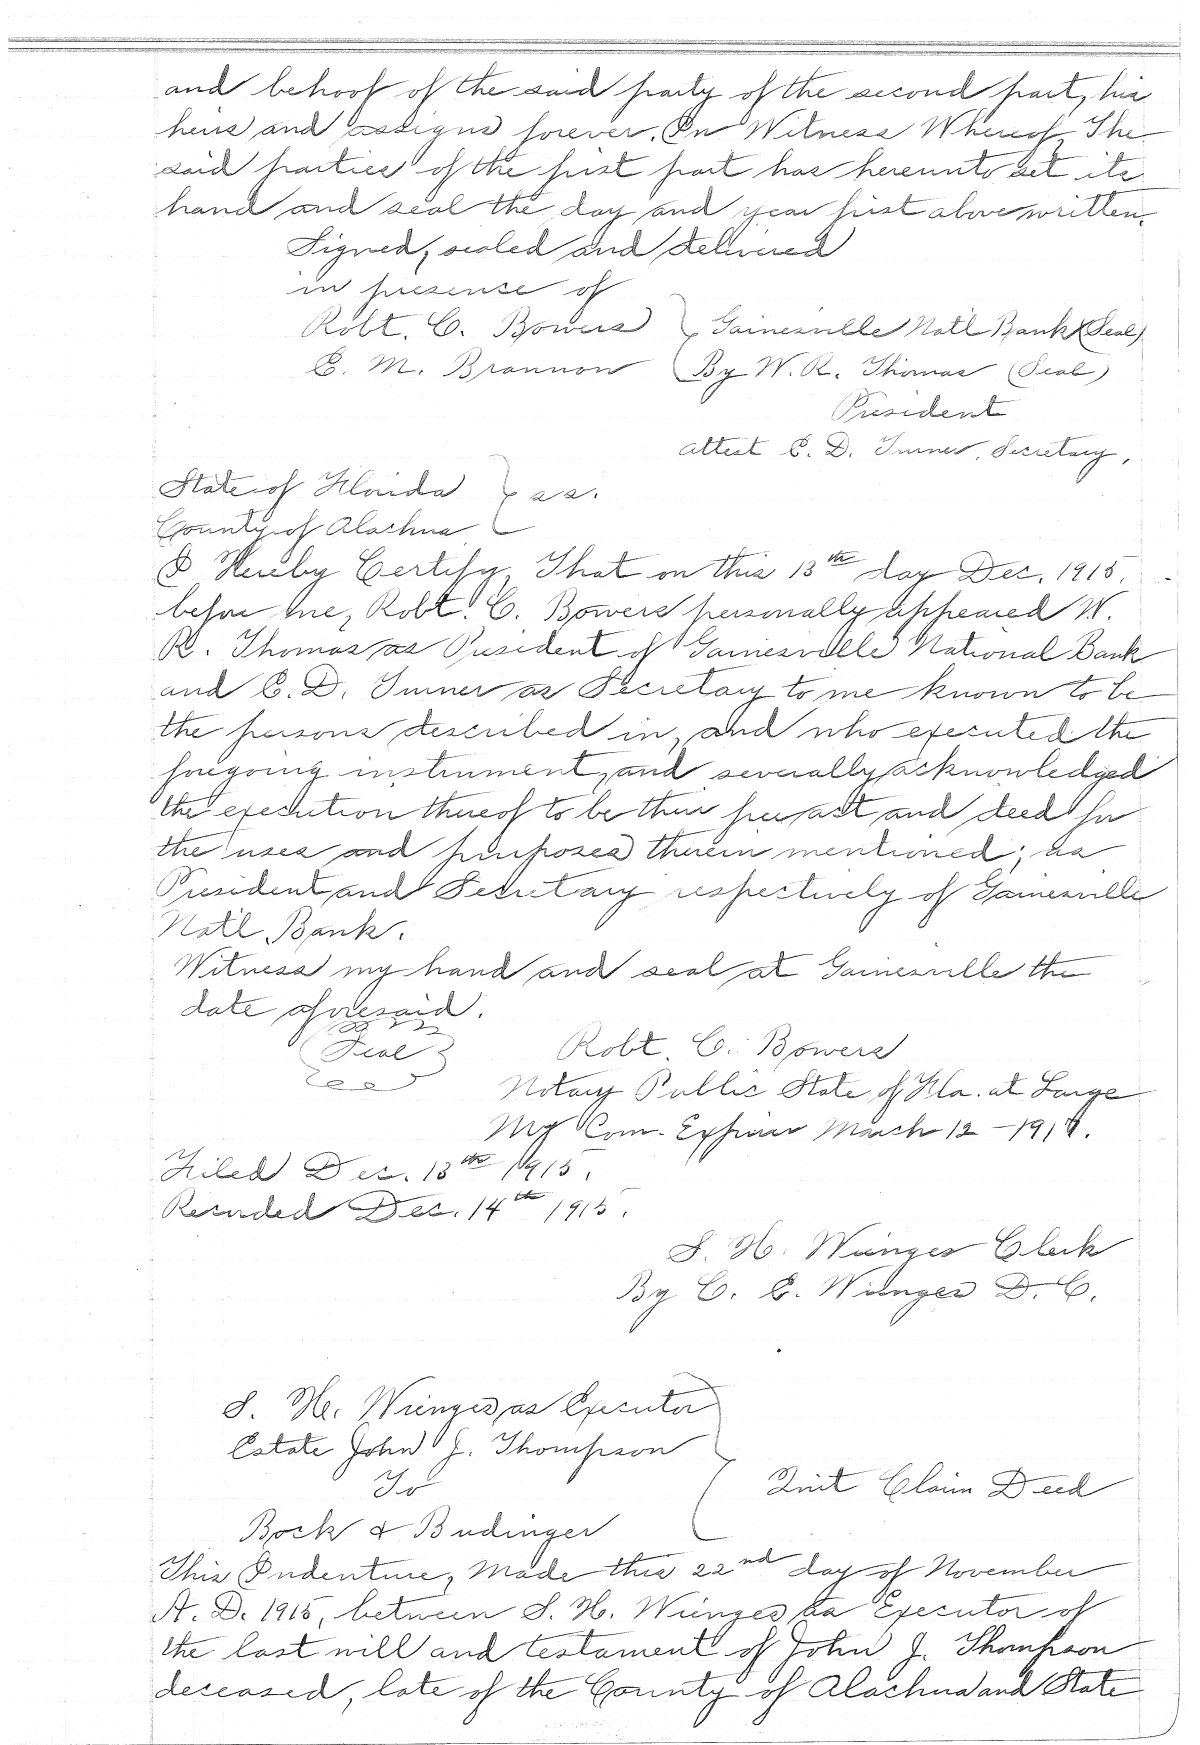 and behoof of the said party of the second part, his
heirs and assigns forever. In Witness Whereof, The
said parties of the first part has hereunto set its
hand and seal the day and year first above written.
Signed, sealed and delivered
in presence of
Robt. C. Bowers } Gainesville Nat'l Bank (Seal)
E. M. Brannon By W. R. Thomas (Seal)
President
attest E. D. Turner, Secretary,
State of Florida } s.s.
County of Alachua
I Hereby Certify, That on this 13th day Dec. 1915,
before me, Robt. C. Bowers personally appeared W.
R. Thomas as President of Gainesville National Bank
and E. D. Turner as Secretary to me known to be
the persons described in, and who executed the
foregoing instrument, and severally acknowledged
the execution thereof to be their free act and deed for
the uses and purposes therein mentioned; as
President and Secretary respectively of Gainesville
Nat'l. Bank.
Witness my hand and seal at Gainesville the
date aforesaid.
(Seal) Robt. C. Bowers
Notary Public State of Fla. at Large
My Com. Expires March 12 - 1917.
Filed Dec. 13th 1915.
Recorded Dec. 14th 1915.
S. H. Wienges Clerk
By C. E. Wienges D. C.
S. H. Wienges as Executor
Estate John J. Thompson
To } Quit Claim Deed
Bock & Budinger
This Indenture, Made this 22nd day of November
A. D. 1915, between S. H. Wienges as Executor of
the last will and testament of John J. Thompson
deceased, late of the County of Alachua and State